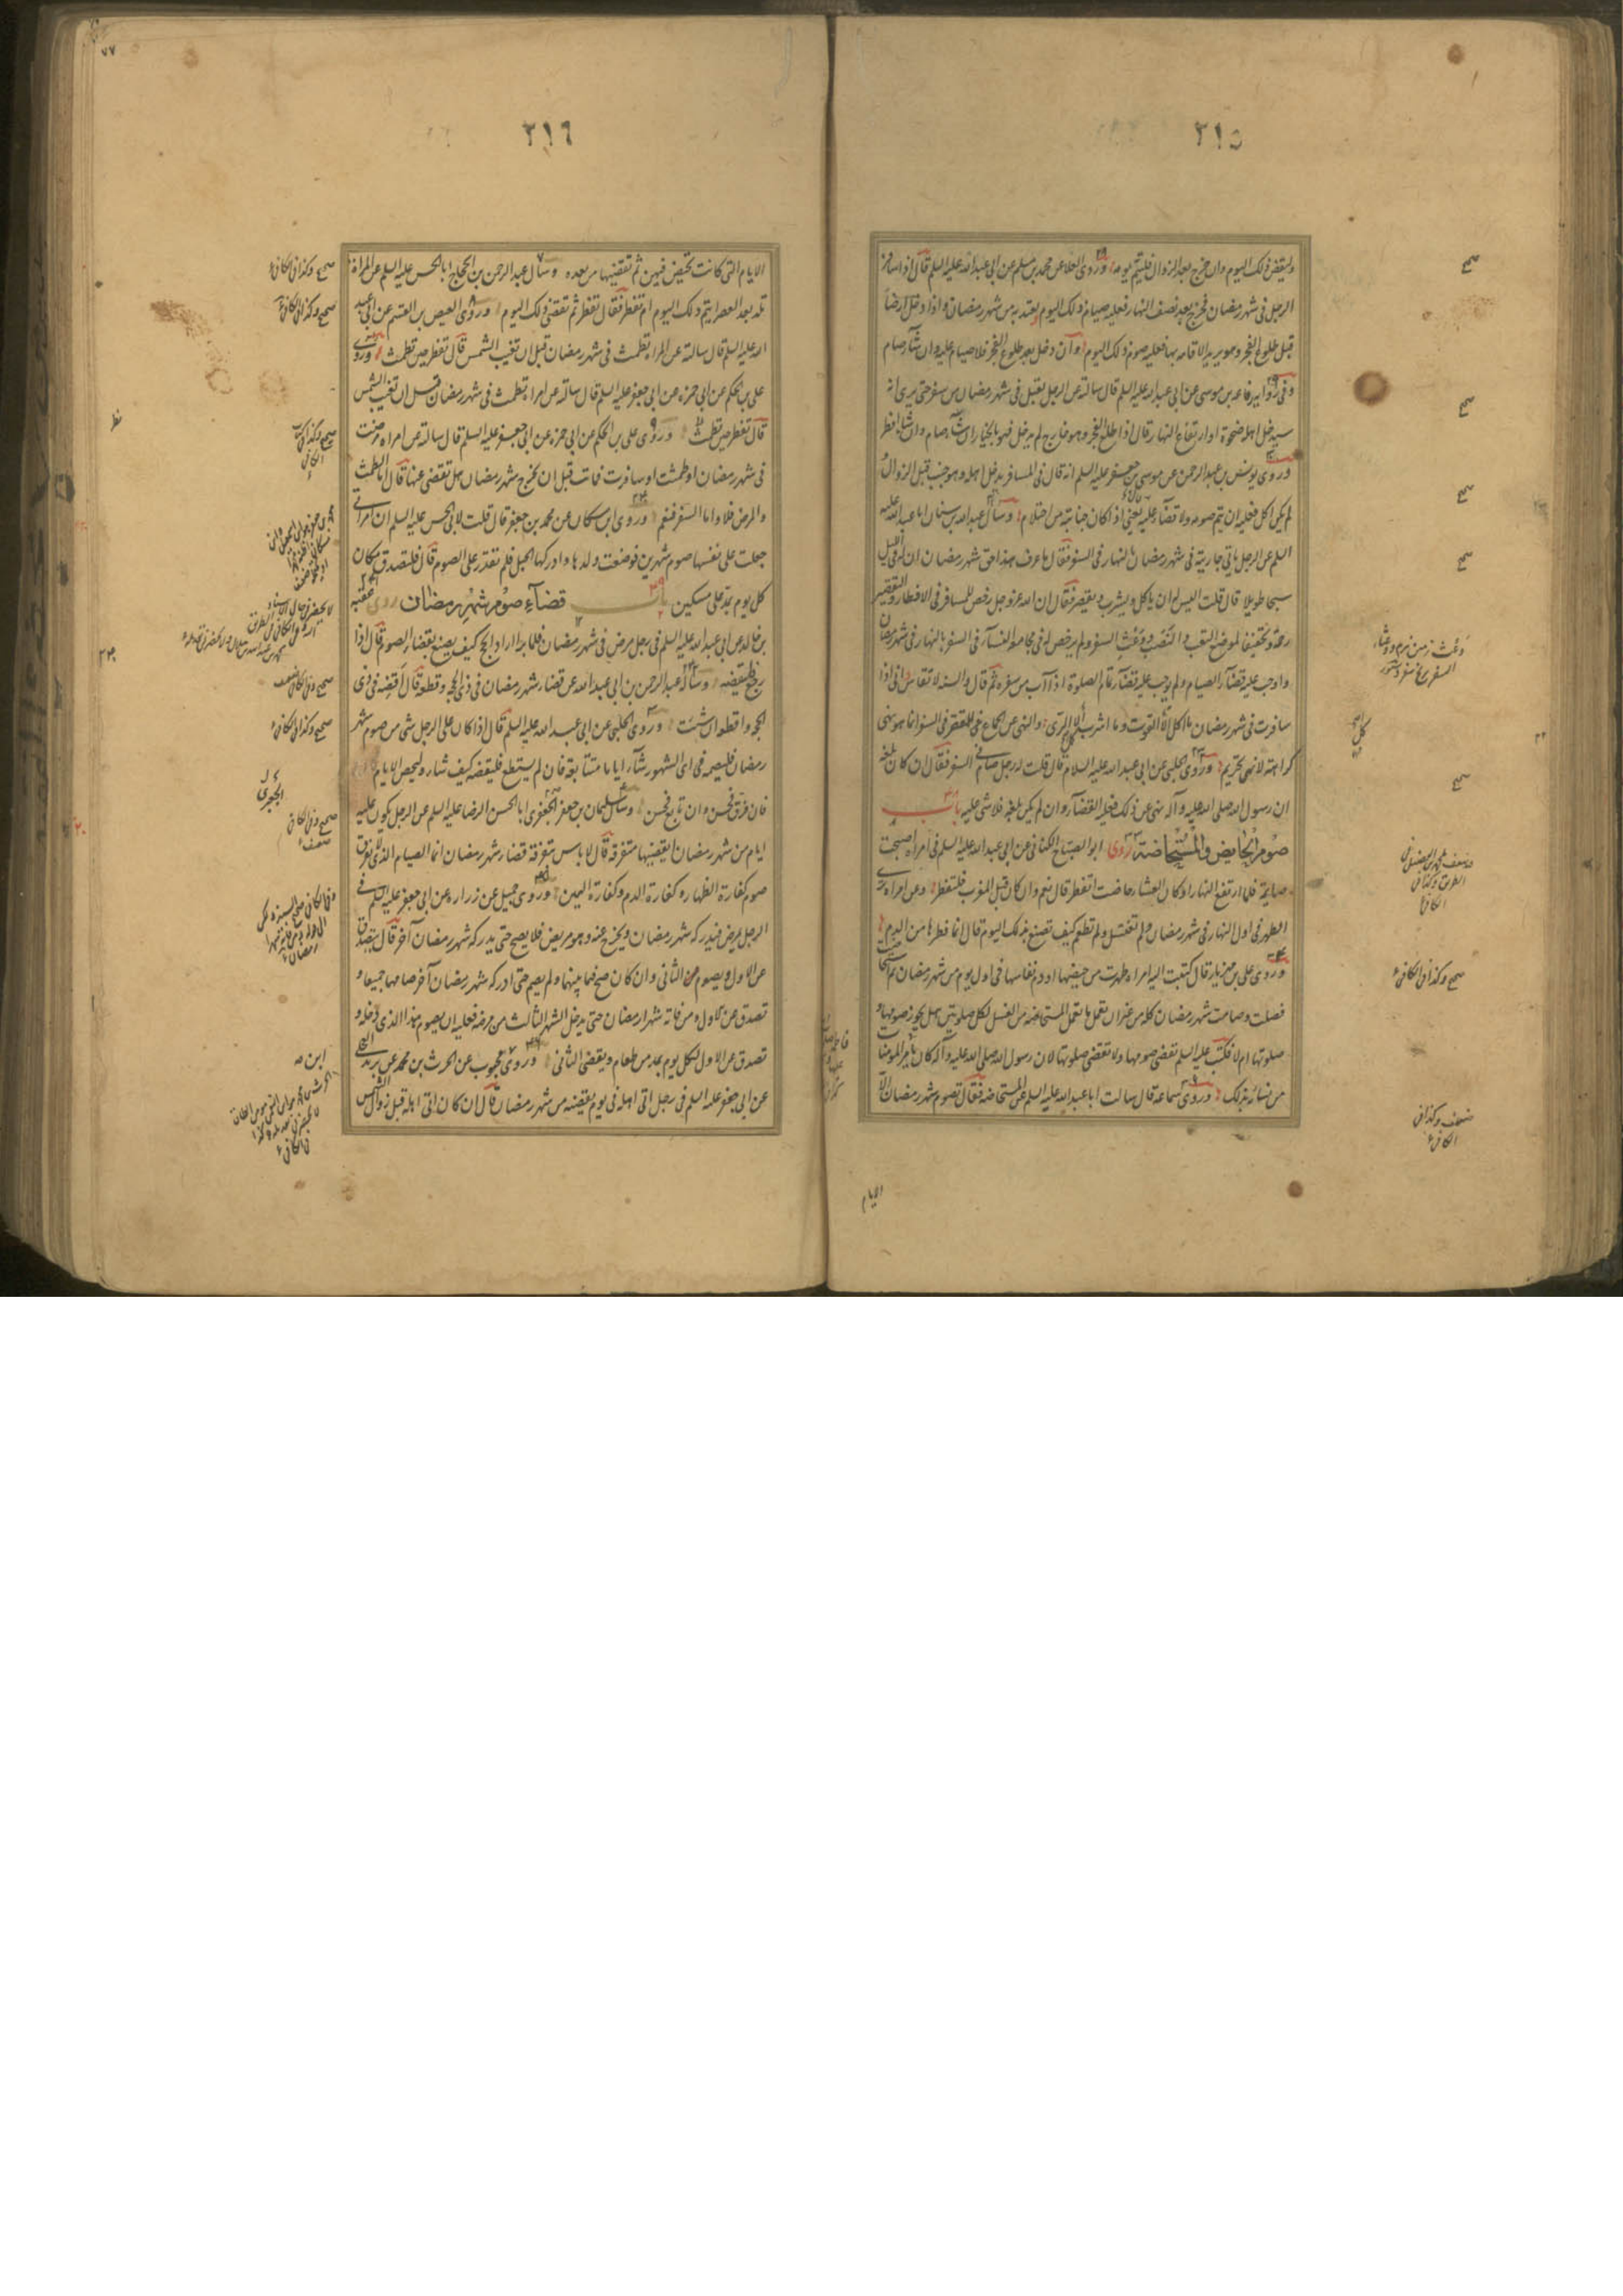 ٢١٥
وليقض ذلك اليوم وان خرج بعد الزوال فليتم يومه وروى العلا عن محمد بن مسلم عن ابي عبد الله عليه السلم قال اذا سافر
الرجل في شهر رمضان فخرج بعد نصف النهار فعليه صيام ذلك اليوم يعتد به من شهر رمضان واذا دخل ارضا
قبل طلوع الفجر وهو يريد الاقامه بها فعليه صوم ذلك اليوم وان دخل بعد طلوع الفجر فلا صيام عليه وان شآء صام
وفي رواية رفاعه بن موسى عن ابي عبد الله عليه السلم قال سالته عن الرجل يقبل في شهر رمضان من سفر حتى يرى انه
سيدخل اهله ضحوة او ارتفاع النهار قال اذا طلع الفجر وهو خارج لم يدخل فهو بالخيار ان شآء صام وان شاء افطر
وروى يونس بن عبد الرحمن عن موسى بن جعفر عليه السلم انه قال في المسافر يدخل اهله وهو جنب قبل الزوال و
لم يكن اكل فعليه ان يتم صومه ولا قضآء عليه يعني اذا كان جنابته من احتلام وسأل عبد الله بن سنان ابا عبد الله عليه
السلم عن الرجل ياتي جاريته في شهر رمضان بالنهار في السفر فقال ما عرف هذا حق شهر رمضان ان له في الليل
سبحا طويلا قال قلت اليس له ان ياكل ويشرب ويقصر فقال ان الله عز وجل رخص للمسافر في الافطار والتقصير
رحمة وتخفيفا لموضع التعب والنصب ووعث السفر ولم يرخص له في مجامعه النسآء في السفر بالنهار في شهر رمضان
واوجب عليه قضآء الصيام ولم يوجب عليه قضآء تمام الصلوة اذا آب من سفره ثم قال والسنه لا تقاس اني اذا
سافرت في شهر رمضان ما اكل الا القوت وما اشرب كل الري والنهي عن الجماع للمقصر في السفر انما هو نهي
كراهة لا نهي تحريم وروى الحلبي عن ابي عبد الله عليه السلام قال قلت له رجل صام في السفر فقال ان كان بلغه
ان رسول الله صلى الله عليه وآله نهى عن ذلك فعليه القضآء وان لم يكن بلغه فلا شي عليه باب
صوم الحايض والمستحاضة روى ابو الصباح الكناني عن ابي عبد الله عليه السلم في امراه اصبحت
صايمة فلما ارتفع النهار او كان العشاء حاضت اتفطر قال نعم وان كان قبل المغرب فلتفطر وعن امراه ترى
الطهر في اول النهار في شهر رمضان ولم تغتسل ولم تطعم كيف تصنع بذلك اليوم قال انما فطرها من الدم
وروى علي بن مهزيار قال كتبت اليه امراه طهرت من حيضها او دم نفاسها في اول يوم من شهر رمضان ثم استحاضت
فصلت وصامت شهر رمضان كله من غير ان تعمل ما تعمل المستحاضه من الغسل لكل صلوتين هل يجوز صومها و
صلوتها ام لا فكتب عليه السلم تقضي صومها ولا تقضي صلوتها لان رسول الله صلى الله عليه وآله كان يأمر المومنات
من نسائه بذلك وروى سماعه قال سالت ابا عبد الله عليه السلم عن المستحاضه فقال تصوم شهر رمضان الا
الايام
صح
صح
صح
صح
صح
صح وكذا في الكافي
ضعيف وكذا في
الكافي
٢١٦
الايام التي كانت تحيض فيهن ثم تقضيها من بعده وسأل عبد الرحمن بن الحجاج ابا الحسن عليه السلم عن المراة
تلد بعد العصر اتتم ذلك اليوم ام تفطر فقال تفطر ثم تقضي ذلك اليوم وروى العيص بن القسم عن ابي عبد
الله عليه السلم قال سالته عن المراه تطمث في شهر رمضان قبل ان تغيب الشمس قال تفطر حين تطمث وروى
علي بن الحكم عن ابي حمزه عن ابي جعفر عليه السلم قال سالته عن امراه تطمث في شهر رمضان قبل ان تغيب الشمس
قال تفطر حين تطمث وروى علي بن الحكم عن ابي حمزه عن ابي جعفر عليه السلم قال سالته عن امراه مرضت
في شهر رمضان او طمثت او سافرت فماتت قبل ان يخرج شهر رمضان هل تقضى عنها قال اما الطمث
والمرض فلا واما السفر فنعم وروى ابن مسكان عن محمد بن جعفر قال قلت لابي الحسن عليه السلم ان امراتي
جعلت على نفسها صوم شهرين فوضعت ولدها وادركها الحبل فلم تقدر على الصوم قال فلتصدق مكان
كل يوم بمد على مسكين باب قضآء صوم شهر رمضان روى عقبه
بن خالد عن ابي عبد الله عليه السلم في رجل مرض في شهر رمضان فلما برا اراد الحج كيف يصنع بقضاء الصوم قال اذا
رجع فليقضه وسأله عبد الرحمن بن ابي عبد الله عن قضاء شهر رمضان في ذي الحجه وقطعه قال اقضه في ذي
الحجه واقطعه ان شئت وروى الحلبي عن ابي عبد الله عليه السلم قال اذا كان على الرجل شي من صوم شهر
رمضان فليصمه في اي الشهور شآء اياما متتابعة فان لم يستطع فليقضه كيف شاء وليحص الايام
فان فرق فحسن وان تابع فحسن وسأل سليمان بن جعفر الجعفري ابا الحسن الرضا عليه السلم عن الرجل يكون عليه
ايام من شهر رمضان ايقضيها متفرقه قال لا باس بتفرقة قضاء شهر رمضان انما الصيام الذي لا يفرق
صوم كفارة الظهار وكفارة الدم وكفارة اليمين وروى جميل عن زراره عن ابي جعفر عليه السلم في
الرجل يمرض فيدركه شهر رمضان ويخرج عنه وهو مريض فلا يصح حتى يدركه شهر رمضان آخر قال يتصدق
عن الاول ويصوم عن الثاني وان كان صح فيما بينهما ولم يصم حتى ادركه شهر رمضان آخر صامهما جميعا و
تصدق عن الاول ومن فاته شهر رمضان حتى يدخل الشهر الثالث من مرضه فعليه ان يصوم هذا الذي دخله و
تصدق عن الاول لكل يوم بمد من طعام ويقضي الثاني وروى ابن محبوب عن الحرث بن محمد عن بريد العجلي
عن ابي جعفر عليه السلم في رجل اتى اهله في يوم يقضيه من شهر رمضان قال ان كان اتى اهله قبل زوال الشمس
صح وكذا في الكافي
صح وكذا في الكافي
صح وكذا في الكافي